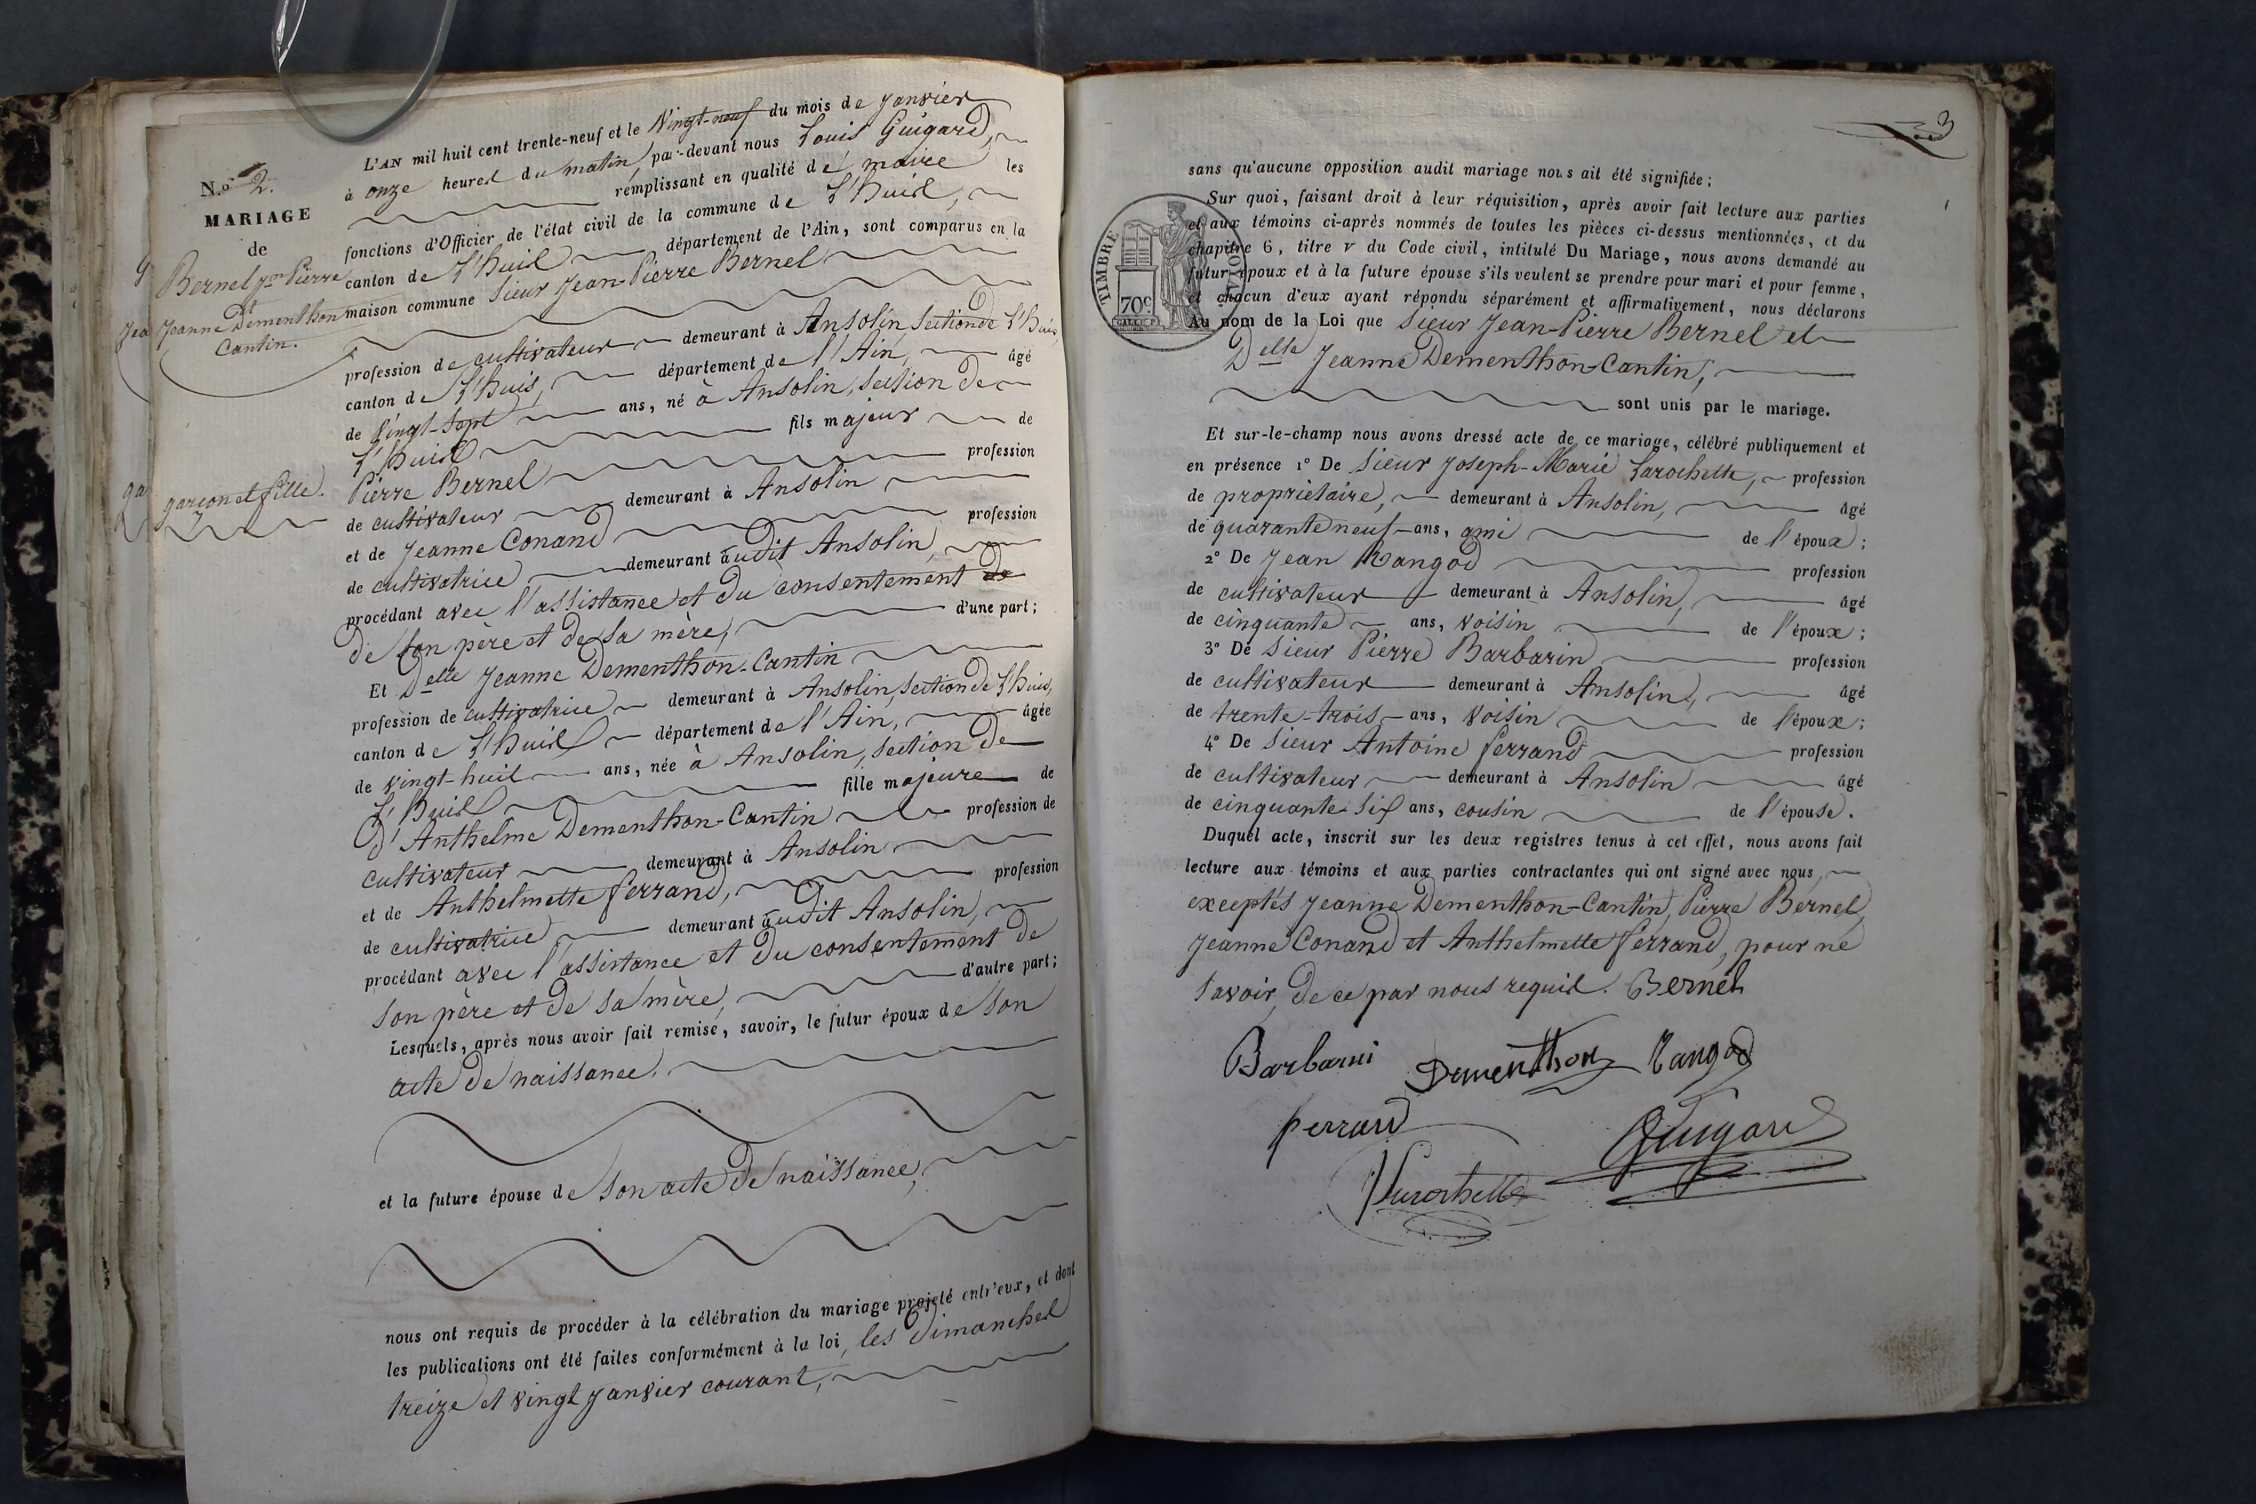 N.o 2.
MARIAGE
de
Bernel Jn Pierre
et
Jeanne Dementhon
Cantin.
garçon et fille.
L'AN mil huit cent trente-neuf et le Vingt-neuf du mois de Janvier
à onze heures du matin, par-devant nous Louis Guigard,
remplissant en qualité de maire les
fonctions d'Officier de l'état civil de la commune de L'huis,
canton de L'huis département de l'Ain, sont comparus en la
maison commune Sieur Jean-Pierre Bernel
profession de cultivateur demeurant à Ansolin, section de L'huis,
canton de L'huis, département de l'Ain, âgé
de Vingt-Sept ans, né à Ansolin, section de
L'huis fils majeur de
Pierre Bernel profession
de cultivateur demeurant à Ansolin
et de Jeanne Conand profession
de cultivatrice demeurant audit Ansolin,
procédant avec l'assistance et du consentement de
de son père et de sa mère, d'une part;
Et Delle Jeanne Dementhon-Cantin
profession de cultivatrice demeurant à Ansolin, section de L'huis,
canton de L'huis département de l'Ain, âgée
de vingt-huit ans, née à Ansolin, section de
L'huis fille majeure de
d'Anthelme Dementhon-Cantin profession de
cultivateur demeurant à Ansolin
et de Anthelmette ferrand, profession
de cultivatrice demeurant audit Ansolin,
procédant avec l'assistance et du consentement de
son père et de sa mère, d'autre part;
Lesquels, après nous avoir fait remise, savoir, le futur époux de son
acte de naissance.
et la future épouse de son acte de naissance,
nous ont requis de procéder à la célébration du mariage projeté entr'eux, et dont
les publications ont été faites conformément à la loi, les dimanches
treize et vingt janvier courant,
3
sans qu'aucune opposition audit mariage nous ait été signifiée;
Sur quoi, faisant droit à leur réquisition, après avoir fait lecture aux parties
et aux témoins ci-après nommés de toutes les pièces ci-dessus mentionnées, et du
chapitre 6, titre v du Code civil, intitulé Du Mariage, nous avons demandé au
futur époux et à la future épouse s'ils veulent se prendre pour mari et pour femme,
et chacun d'eux ayant répondu séparément et affirmativement, nous déclarons
Au nom de la Loi que Sieur Jean-Pierre Bernel et
Delle Jeanne Dementhon-Cantin,
sont unis par le mariage.
TIMBRE ROYAL
70c
Et sur-le-champ nous avons dressé acte de ce mariage, célébré publiquement et
en présence 1° De Sieur Joseph-Marie Larochette, profession
de propriétaire, demeurant à Ansolin, âgé
de quarante neuf ans, ami de l'époux;
2° De Jean Rangod profession
de cultivateur demeurant à Ansolin, âgé
de cinquante ans, voisin de l'époux;
3° De Sieur Pierre Barbarin profession
de cultivateur demeurant à Ansolin, âgé
de trente-trois ans, voisin de l'époux;
4° De Sieur Antoine ferrand profession
de cultivateur demeurant à Ansolin âgé
de cinquante-six ans, cousin de l'épouse.
Duquel acte, inscrit sur les deux registres tenus à cet effet, nous avons fait
lecture aux témoins et aux parties contractantes qui ont signé avec nous,
exceptés Jeanne Dementhon-Cantin, Pierre Bernel,
Jeanne Conand et Anthelmette ferrand, pour ne
savoir, de ce par nous requis. Bernel
Barbarin Dementhon Rangod
ferrand Guigard
Larochette